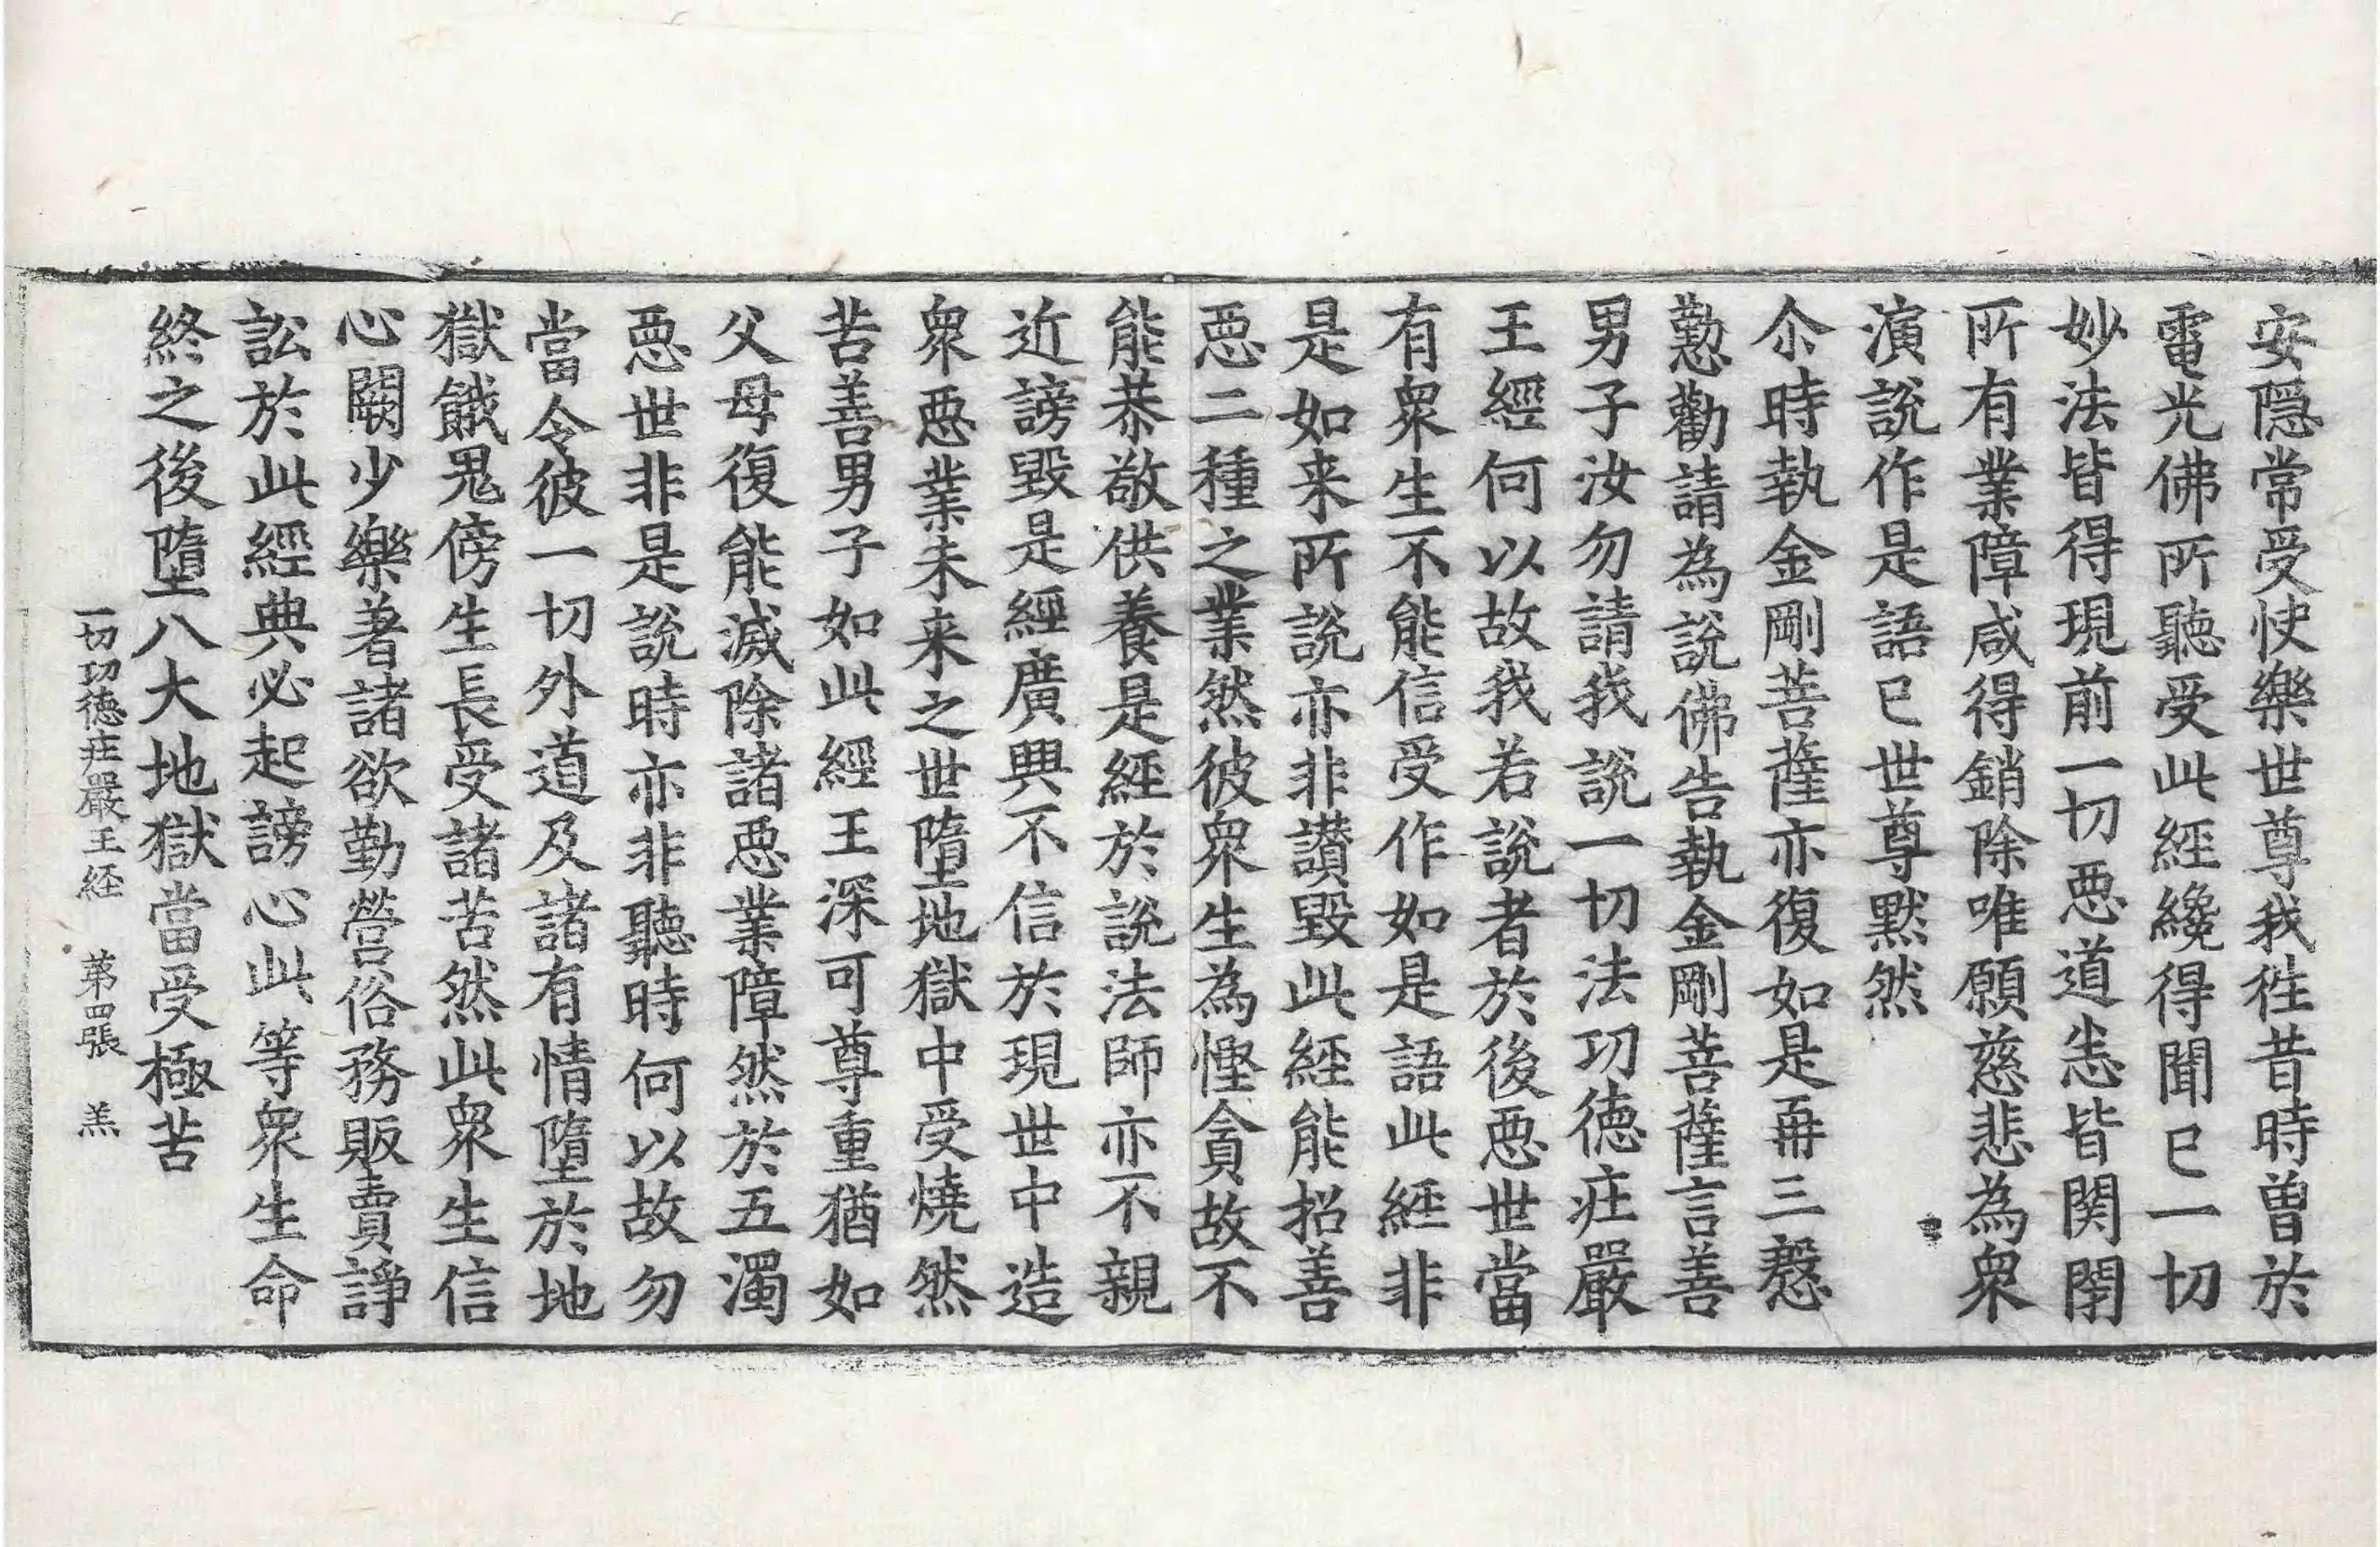 安隠常受快樂世尊我徃昔時曽於
電光佛所聽受此經纔得聞已一切
妙法皆得現前一切惡道恙皆関閇
所有業障咸得銷除唯願慈悲為衆
演說作是語已世尊黙然
尒時執金剛菩薩亦復如是再三慇
懃勸請為說佛告執金剛菩薩言善
男子汝勿請我說一切法功徳荘嚴
王經何以故我若說者於後惡世當
有衆生不能信受作如是語此經非
是如来所說亦非讃毀此經能招善
惡二種之業然彼衆生為慳貪故不
能恭敬供養是經於說法師亦不親
近謗毀是經廣興不信於現世中造
衆惡業未来之世墮地獄中受燒然
苦善男子如此經王深可尊重猶如
父母復能滅除諸惡業障然於五濁
惡世非是說時亦非聽時何以故勿
當令彼一切外道及諸有情墮於地
獄餓鬼傍生長受諸苦然此衆生信
心闕少樂著諸欲勤營俗務販賣諍
訟於此經典必起謗心此等衆生命
終之後墮八大地獄當受極苦
一切功徳荘嚴王経 第四張 羔